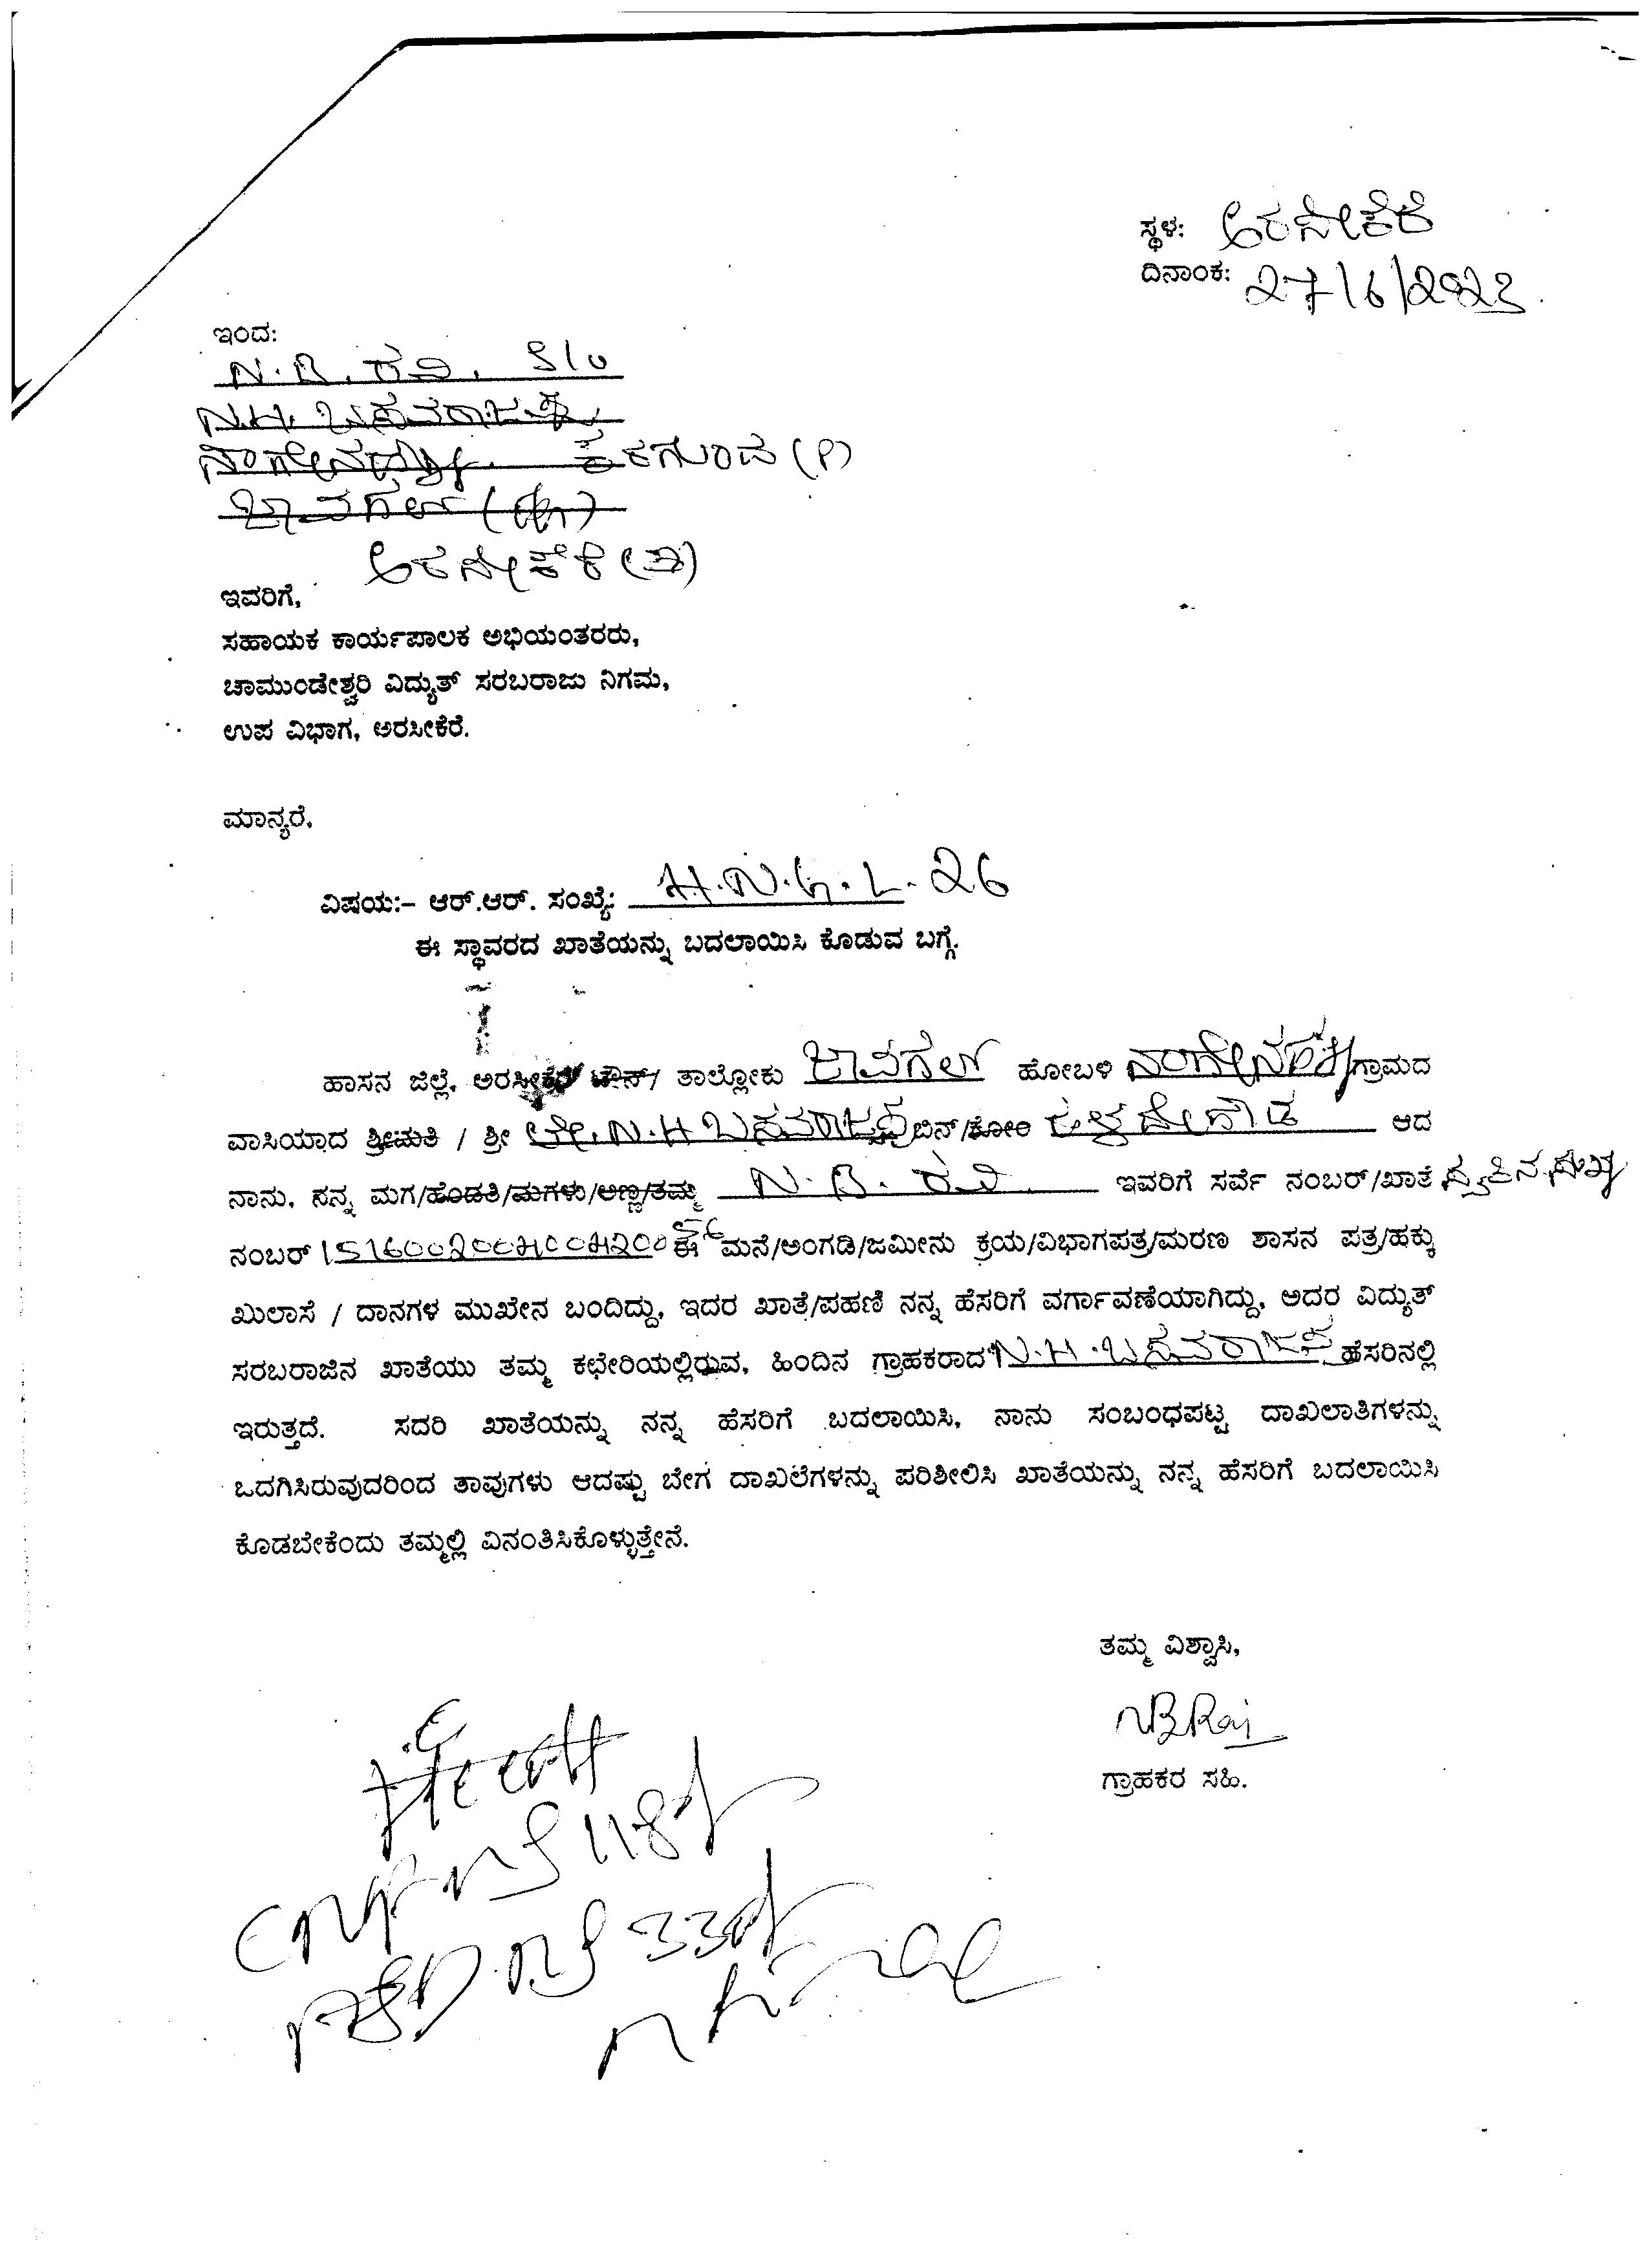 ಸ್ಥಳ: ಅರಸೀಕೆರೆ
ದಿನಾಂಕ: 27/6/2023
ಇಂದ:
N.B. ರವಿ. S/o
N.H. ಬಸವರಾಜಪ್ಪ
(P)
ಜಾವಗಲ್ (ಹೋ)
ಅರಸೀಕೆರೆ (ತಾ)
ಇವರಿಗೆ,
ಸಹಾಯಕ ಕಾರ್ಯಪಾಲಕ ಅಭಿಯಂತರರು,
ಚಾಮುಂಡೇಶ್ವರಿ ವಿದ್ಯುತ್ ಸರಬರಾಜು ನಿಗಮ,
ಉಪ ವಿಭಾಗ, ಅರಸೀಕೆರೆ.
ಮಾನ್ಯರೆ,
ವಿಷಯ:- ಆರ್.ಆರ್. ಸಂಖ್ಯೆ: H.N.G.L-26
ಈ ಸ್ಥಾವರದ ಖಾತೆಯನ್ನು ಬದಲಾಯಿಸಿ ಕೊಡುವ ಬಗ್ಗೆ.
ಹಾಸನ ಜಿಲ್ಲೆ, ಅರಸೀಕೆರೆ ಟೌನ್/ ತಾಲ್ಲೋಕು ಜಾವಗಲ್ ಹೋಬಳಿ ಗ್ರಾಮದ
ವಾಸಿಯಾದ ಶ್ರೀಮತಿ / ಶ್ರೀ ಲೇ. N.H ಬಸವರಾಜಪ್ಪ ಬಿನ್/ಕೋಂ ಆದ
ನಾನು, ನನ್ನ ಮಗ/ಹೆಂಡತಿ/ಮಗಳು/ಅಣ್ಣ/ತಮ್ಮ N.B. ರವಿ ಇವರಿಗೆ ಸರ್ವೆ ನಂಬರ್/ಖಾತೆ ಸ್ವತ್ತಿನ ಸಂಖ್ಯೆ
ನಂಬರ್ ಈ ಮನೆ/ಅಂಗಡಿ/ಜಮೀನು ಕ್ರಯ/ವಿಭಾಗಪತ್ರ/ಮರಣ ಶಾಸನ ಪತ್ರ/ಹಕ್ಕು
ಖುಲಾಸೆ / ದಾನಗಳ ಮುಖೇನ ಬಂದಿದ್ದು, ಇದರ ಖಾತೆ/ಪಹಣಿ ನನ್ನ ಹೆಸರಿಗೆ ವರ್ಗಾವಣೆಯಾಗಿದ್ದು, ಅದರ ವಿದ್ಯುತ್
ಸರಬರಾಜಿನ ಖಾತೆಯು ತಮ್ಮ ಕಛೇರಿಯಲ್ಲಿರುವ, ಹಿಂದಿನ ಗ್ರಾಹಕರಾದ N.H. ಬಸವರಾಜಪ್ಪ ಹೆಸರಿನಲ್ಲಿ
ಇರುತ್ತದೆ. ಸದರಿ ಖಾತೆಯನ್ನು ನನ್ನ ಹೆಸರಿಗೆ ಬದಲಾಯಿಸಿ, ನಾನು ಸಂಬಂಧಪಟ್ಟ ದಾಖಲಾತಿಗಳನ್ನು
ಒದಗಿಸಿರುವುದರಿಂದ ತಾವುಗಳು ಆದಷ್ಟು ಬೇಗ ದಾಖಲೆಗಳನ್ನು ಪರಿಶೀಲಿಸಿ ಖಾತೆಯನ್ನು ನನ್ನ ಹೆಸರಿಗೆ ಬದಲಾಯಿಸಿ
ಕೊಡಬೇಕೆಂದು ತಮ್ಮಲ್ಲಿ ವಿನಂತಿಸಿಕೊಳ್ಳುತ್ತೇನೆ.
ತಮ್ಮ ವಿಶ್ವಾಸಿ,
NBRavi
ಗ್ರಾಹಕರ ಸಹಿ.